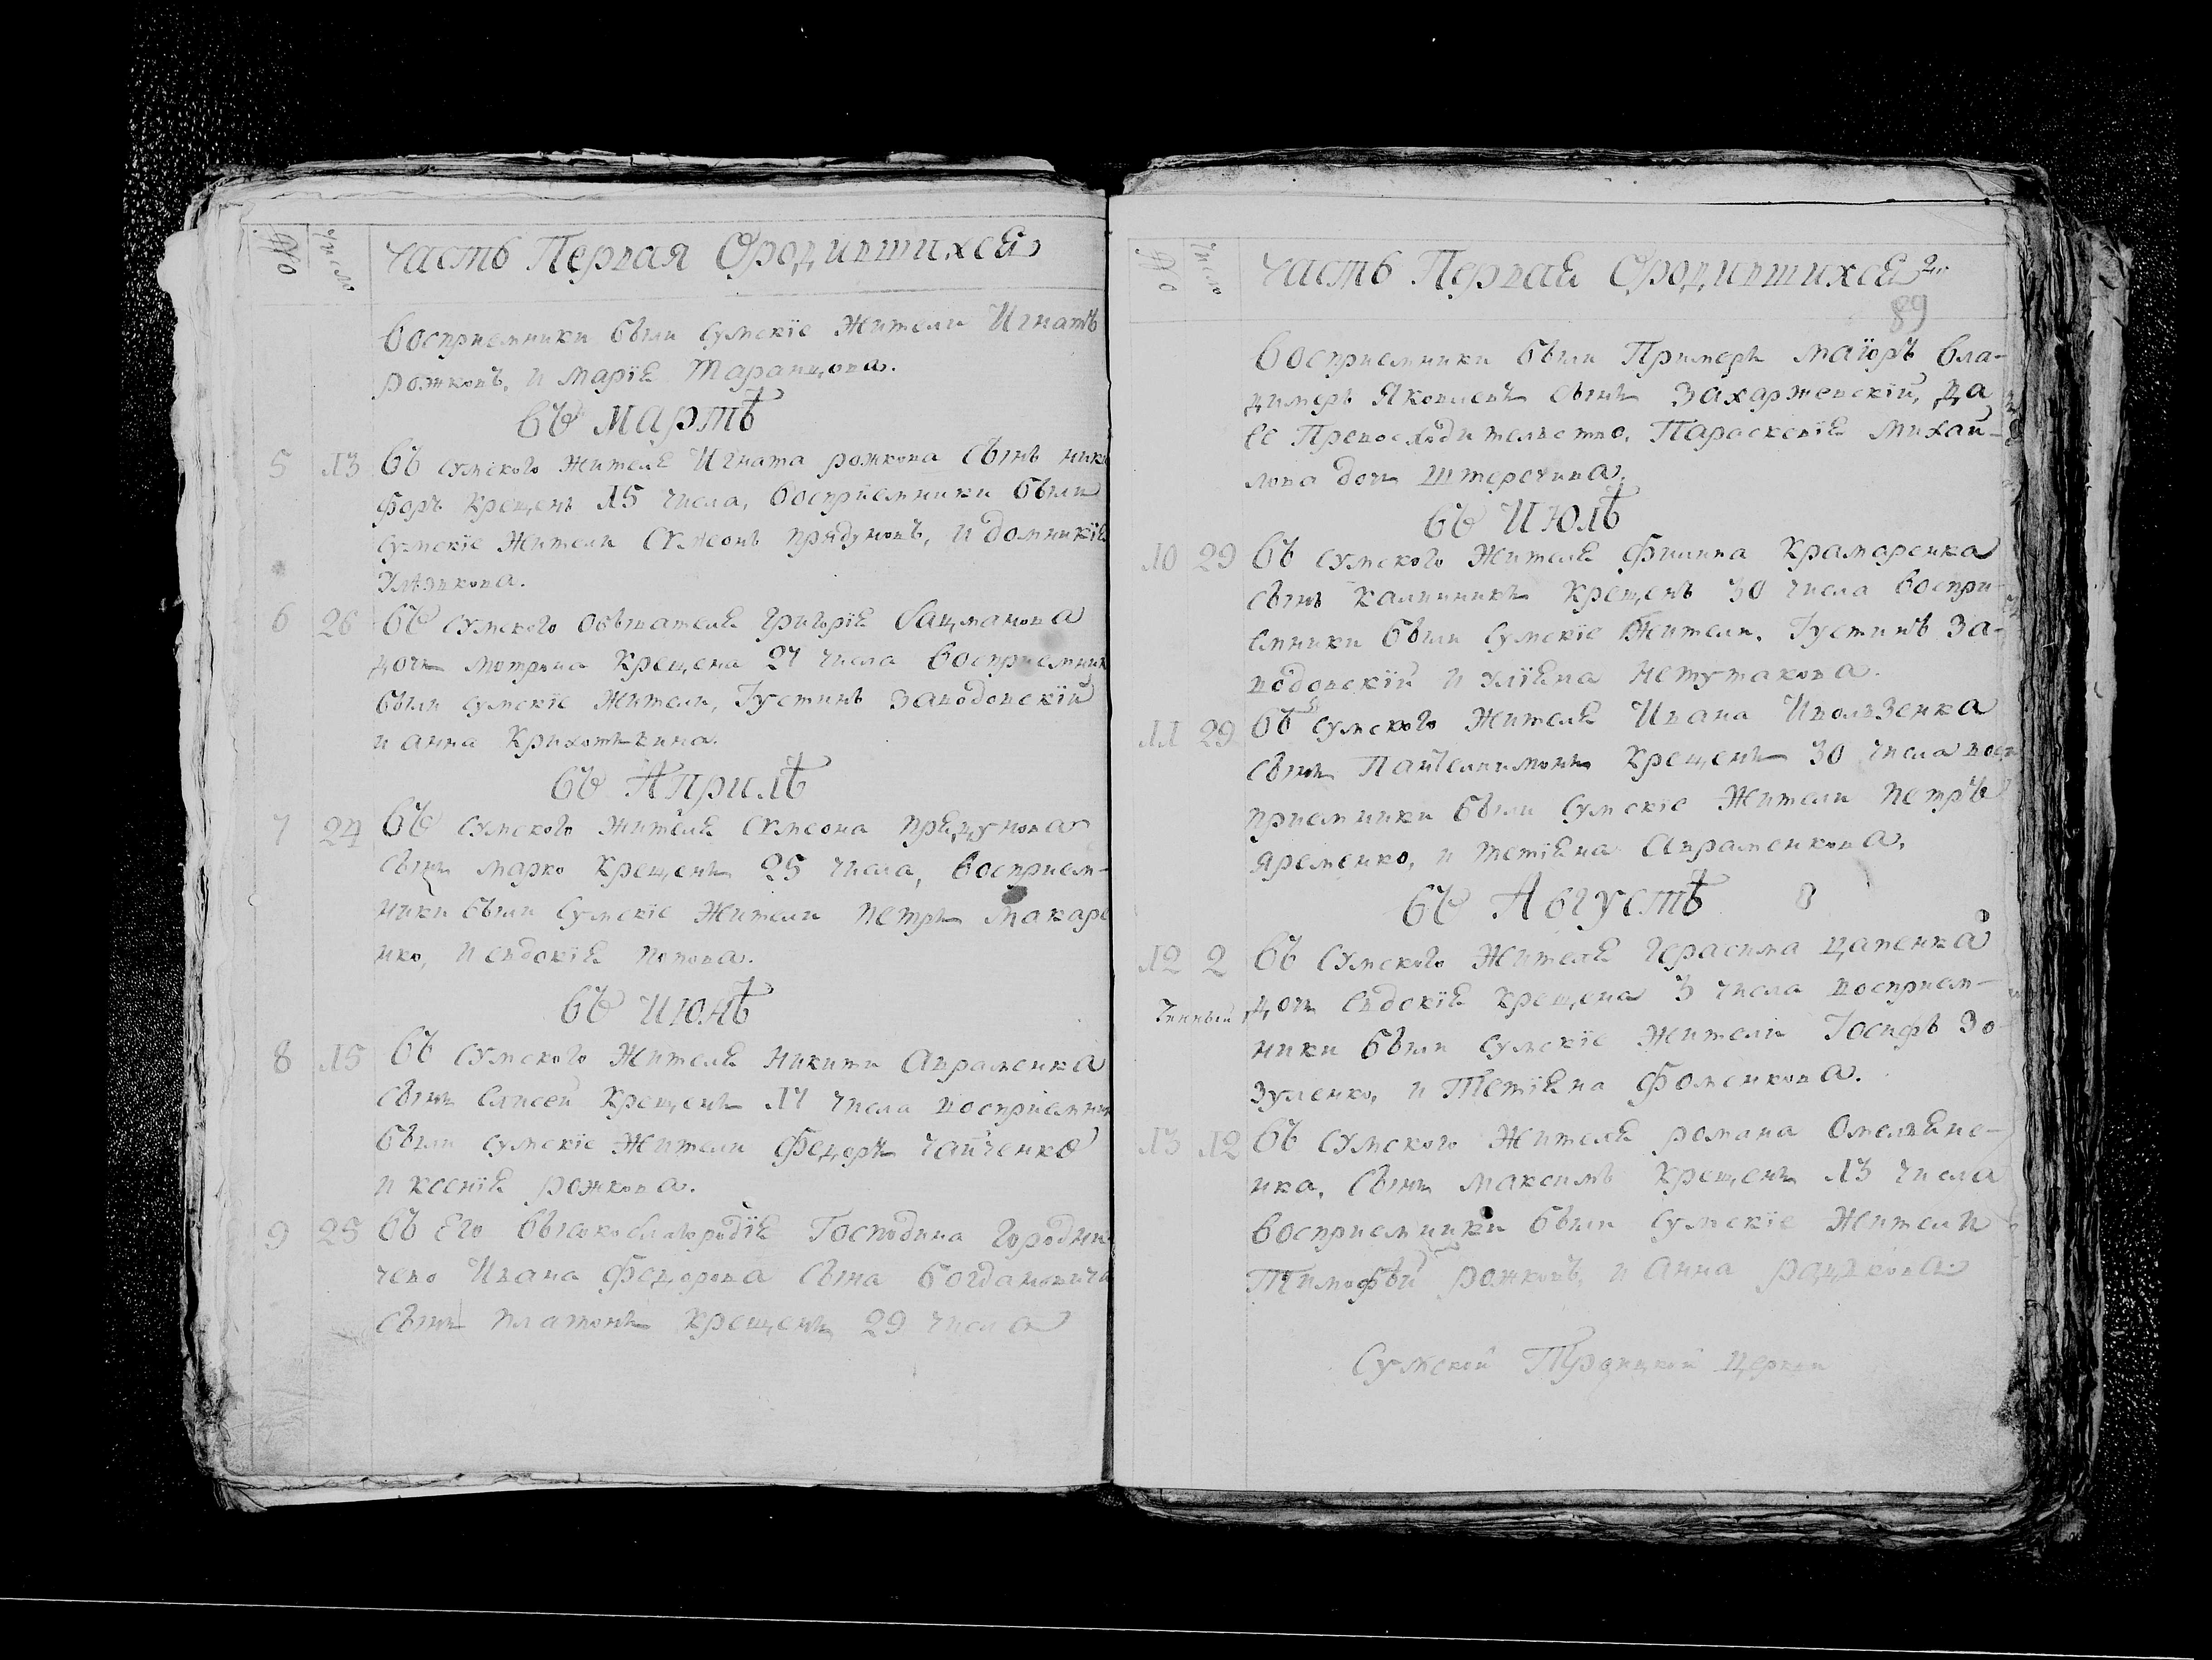 № число Часть Первая Ородившихся
восприемники были сумскіе Жители Игнатъ
рожковъ, и марія Таранцова.
въ мартѣ
5 13 въ сумского жителя Игната рожкова сынъ ники
форъ крещенъ 15 числа, восприемники были
сумскіе Жители Сѵмеонъ прядуновъ, и домникія
6 26 въ сумского обывателя григорія бацманова
дочь мотрона крещена 27 числа восприемники
были сумскіе жители, Іустинъ заводовскій
и анна Крихоткина.
въ Априлѣ
7 24 въ сумского жителя Сѵмеона прядунова
сынъ марко крещенъ 25 числа, восприем-
ники были сумскіе жители петръ макаре
нко, и евдокія попова.
въ июнѣ
8 15 въ сумского Жителя никити Авраменка
сынъ Елисей крещенъ 17 числа восприемники
были сумскіе Жители Федоръ чайченко
и ксенія рожкова.
9 25 въ Его высокоблагородія Господина городни
чево Ивана Федорова сына богдановича
сынъ платонъ крещенъ 29 числа
№ число Часть Первая Ородившихся
89
восприемники были Примеръ маіоръ вла-
димеръ Яковлевъ сынъ Захаржевскій, да
ее Превосходителство, Параскевія михай-
лова дочь штеречива.
въ Июлѣ
10 29 въ сумского Жителя филипа Крамаренка
сынъ калинникъ крещенъ 30 числа воспри-
емники были сумскіе Жители, Іустинъ за-
водовскій и улiяна нетутакова.
11 29 въ сумского Жителя Ивана Иволзенка
сынъ Пантелиимонъ крещенъ 30 числа вос
приемники были сумскіе Жители петръ
яременко, и тетіяна Авраменкова.
въ Августѣ 8
12 2 въ Сумского Жителя герасима цапенка
дочь Евдокія крещена 3 числа восприем-
ники были сумскіе жители Іосифъ Зо-
зуленко, и Тетіяна фоменкова.
13 12 въ сумского Жителя романа Омеляне-
нка, сынъ максимъ крещенъ 13 числа
восприемники были сумскіе Жители
Тимофѣй рожковъ, и Анна
Сумской Троицкой церкви